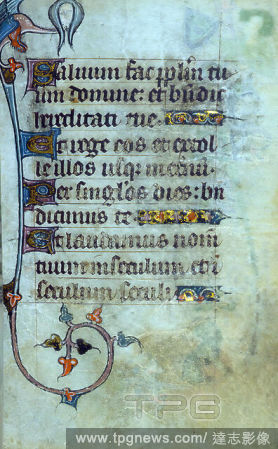 Saluum fac pplm tu
um domine: et bndic
hereditati tue.
Et rege eos et extol
le illos usq; in eternu.
Per singlos dies: bn
dicimus te
Et laudamus nom
tuum in seculum et in
seculum seculi
TPG
www.tpgnews.com/ 達志影像